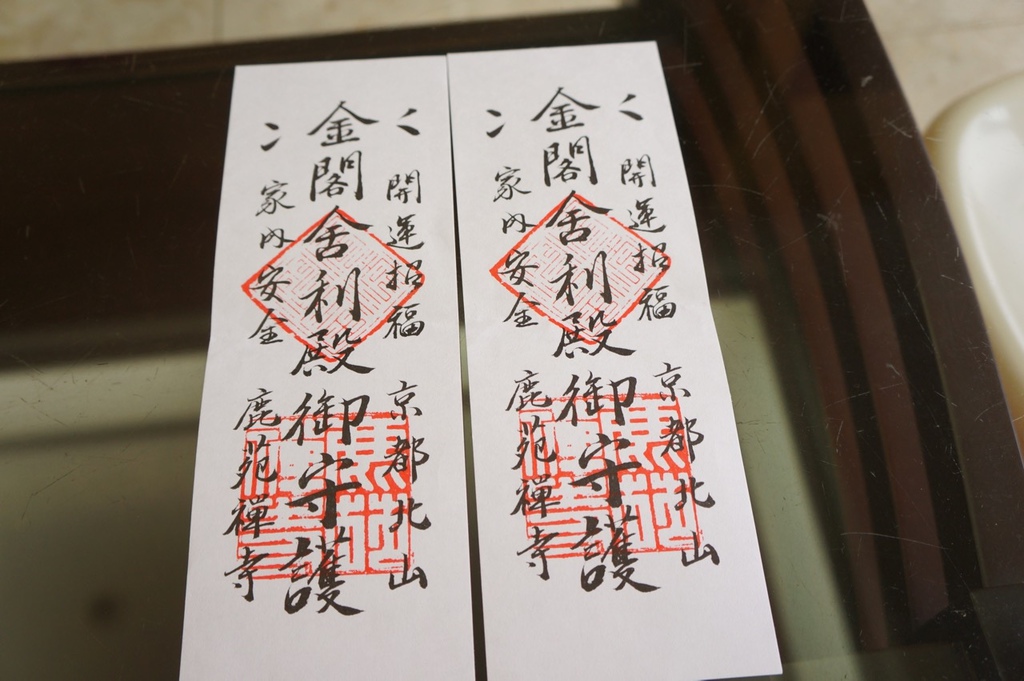 開運招福
京都北山
金閣舍利殿御守護
家内安全
鹿苑禪寺
開運招福
京都北山
金閣舍利殿御守護
家内安全
鹿苑禪寺